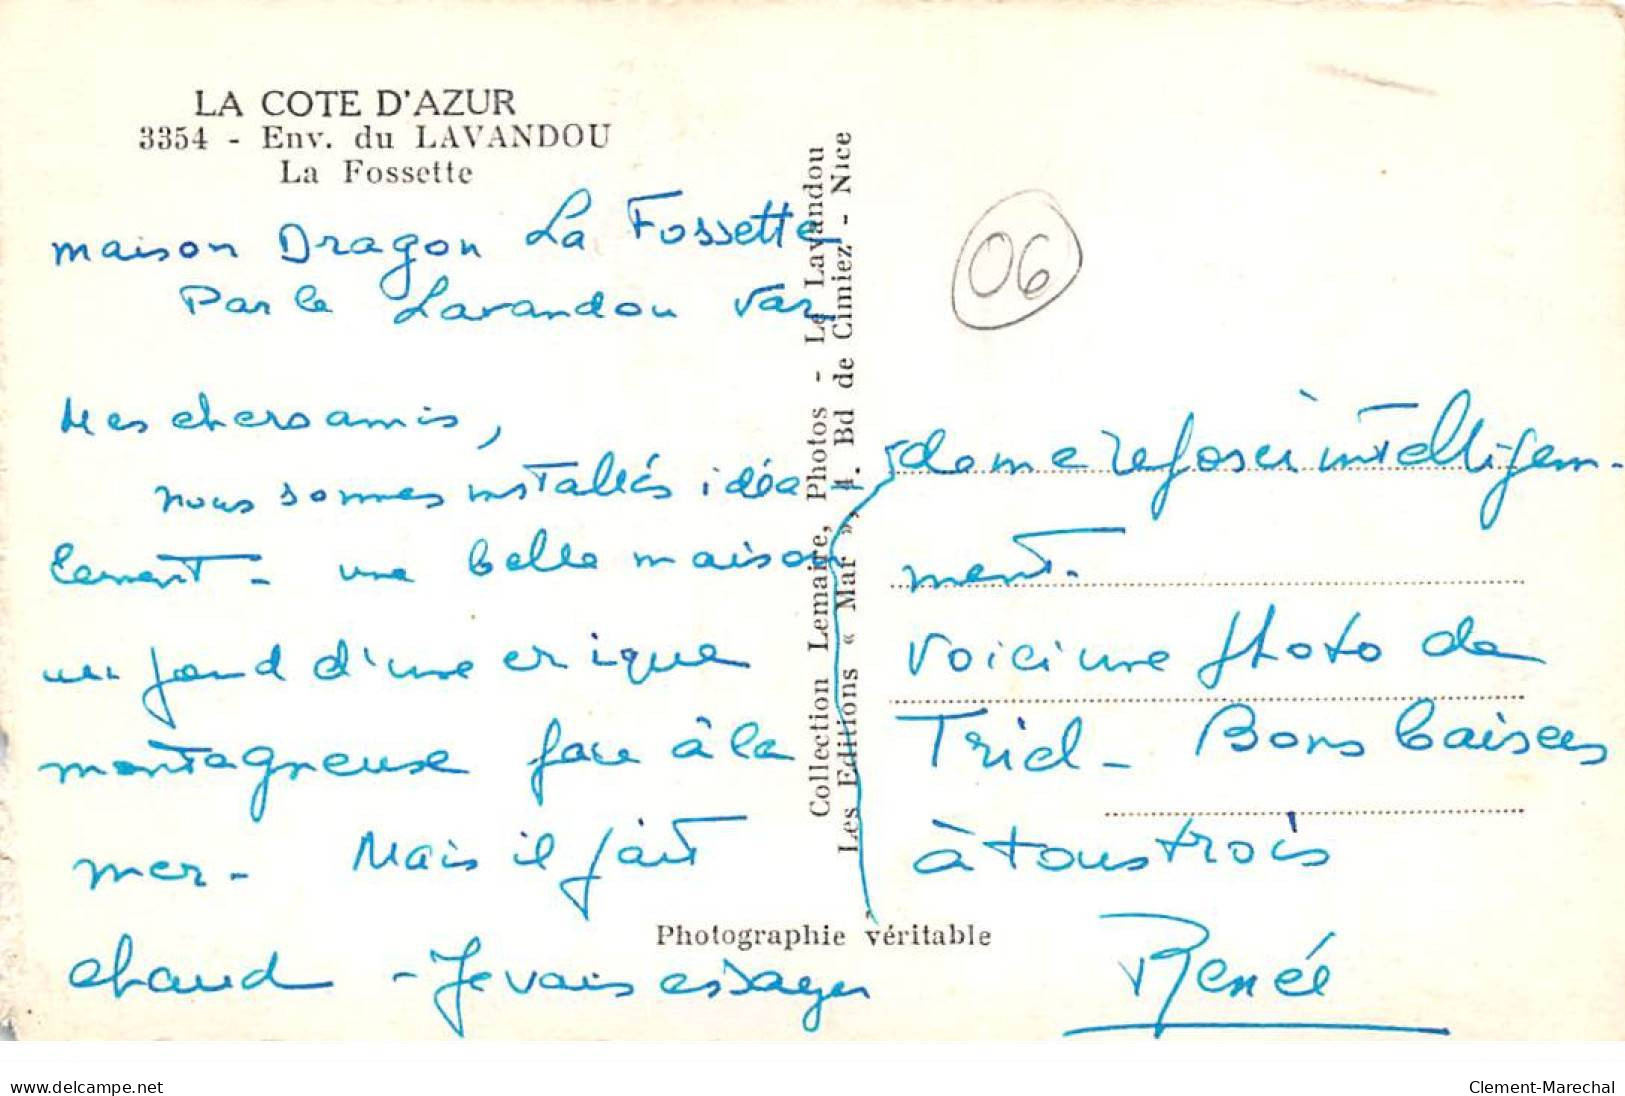 LA COTE D'AZUR
3354 - Env. du LAVANDOU
La Fossette
maison Dragon La Fossette
Par le Lavandou Var
Mes chers amis,
nous sommes installés idéa
lement - une belle maison
au fond d'une crique
montagneuse face à la
mer - Mais il fait
chaud - Je vais essayer
Collection Lemaire, Photos - Le Lavandou
Les Editions « Mar », 4. Bd de Cimiez - Nice
Photographie véritable
06
de me reposer intelligem-
ment.
Voici une photo de
Trid - Bons baisers
à tous trois
Renée
www.delcampe.net
Clement-Marechal